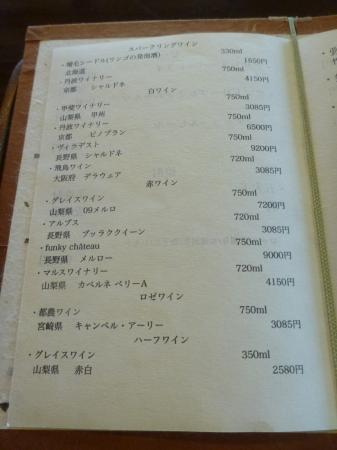 スパークリングワイン
・増毛シードル(リンゴの発泡酒) 330ml
北海道 1650円
・丹波ワイナリー 750ml
京都 シャルドネ 4150円
白ワイン
・甲斐ワイナリー 750ml
山梨県 甲州 3085円
・丹波ワイナリー 750ml
京都 ピノブラン 6500円
・ヴィラデスト 750ml
長野県 シャルドネ 9200円
・飛鳥ワイン 720ml
大阪府 デラウェア 3085円
赤ワイン
・グレイスワイン 750ml
山梨県 09メルロ 7200円
・アルプス 720ml
長野県 ブラッククイーン 3085円
・funky château 750ml
長野県 メルロー 9000円
・マルスワイナリー 720ml
山梨県 カベルネ ベリーA 4150円
ロゼワイン
・都農ワイン 750ml
宮崎県 キャンベル・アーリー 3085円
ハーフワイン
・グレイスワイン 350ml
山梨県 赤白 2580円